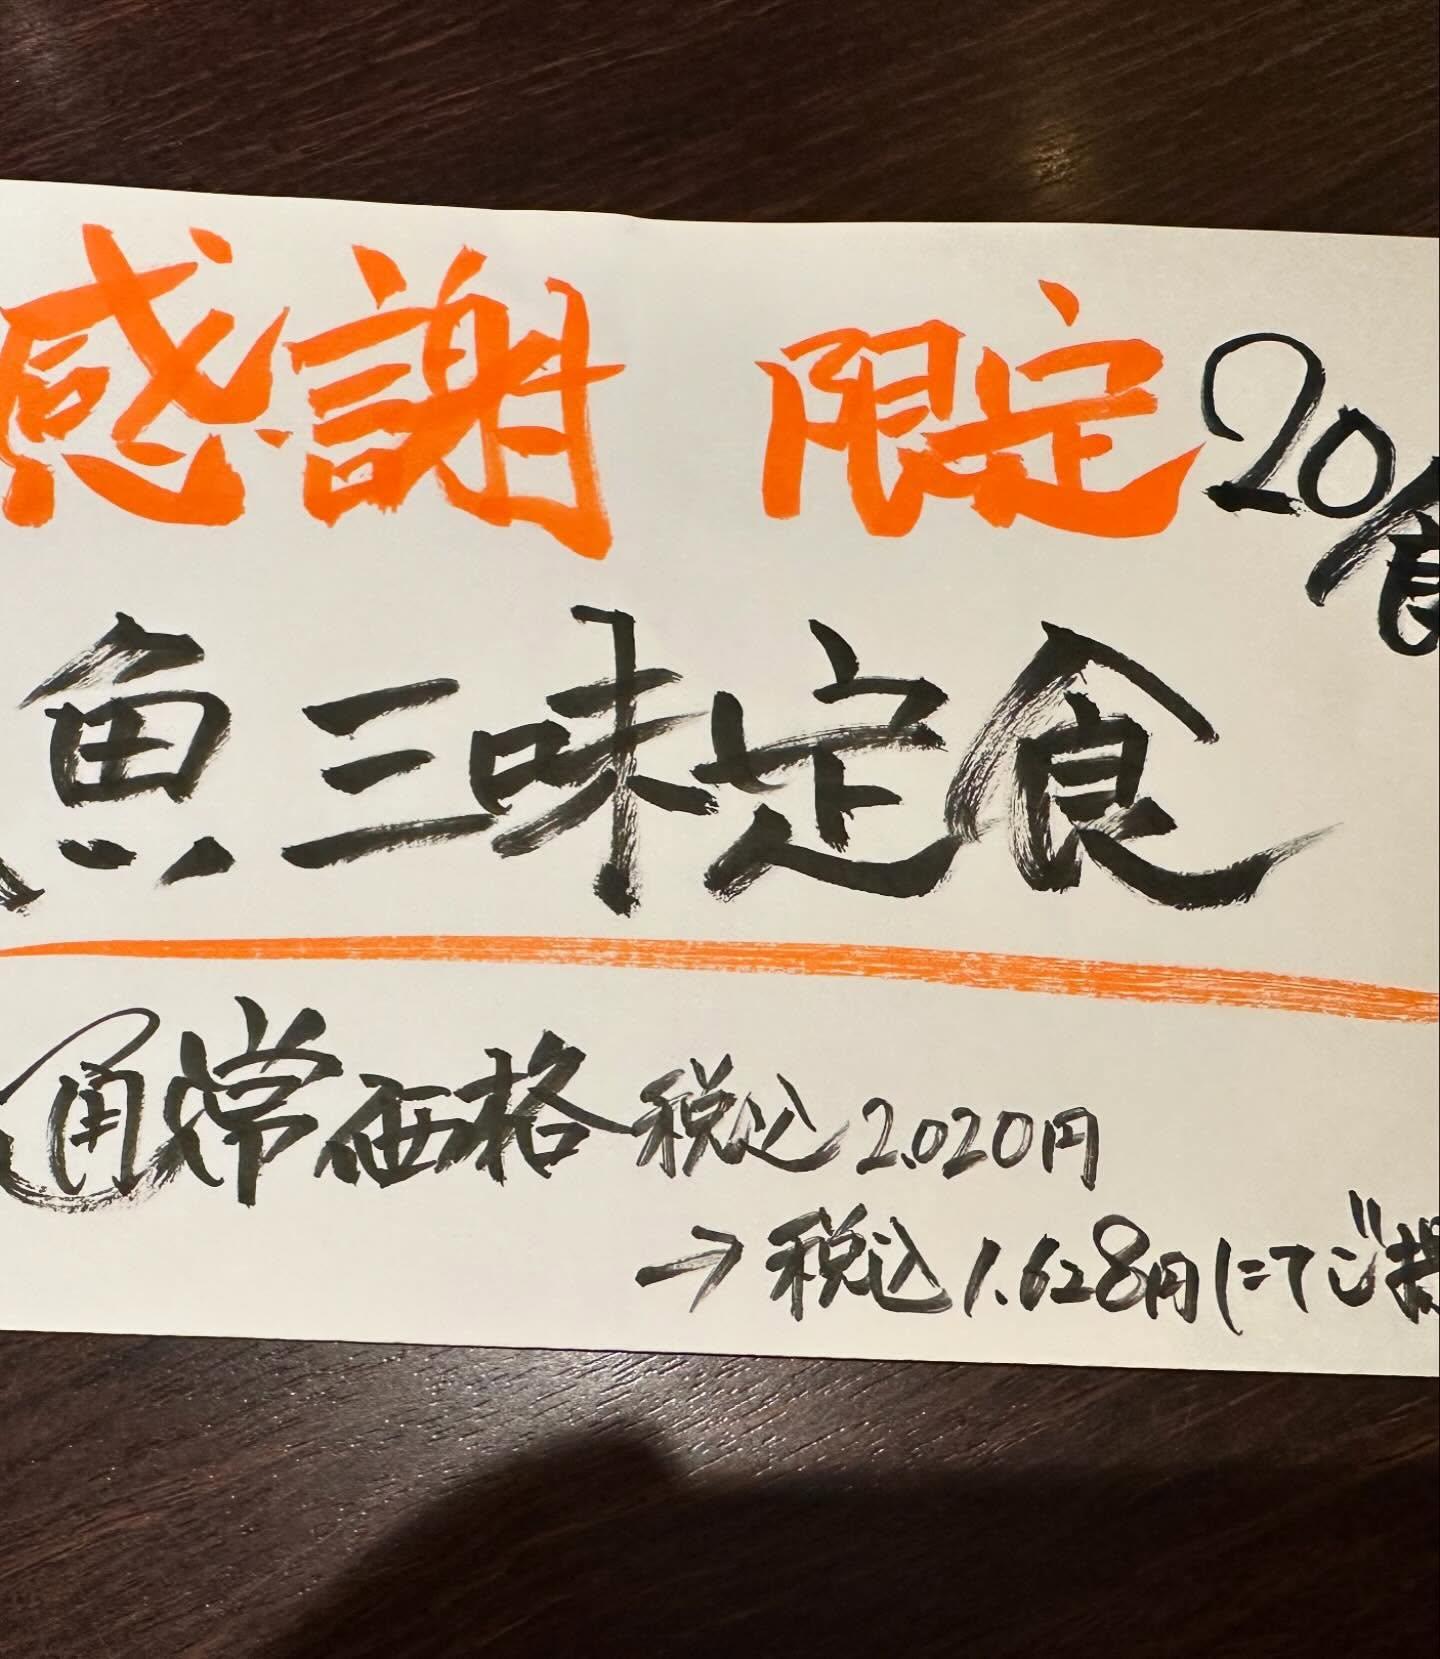 感謝 限定20食
魚三味定食
通常価格 税込 2.020円
→ 税込 1.628円にてご提